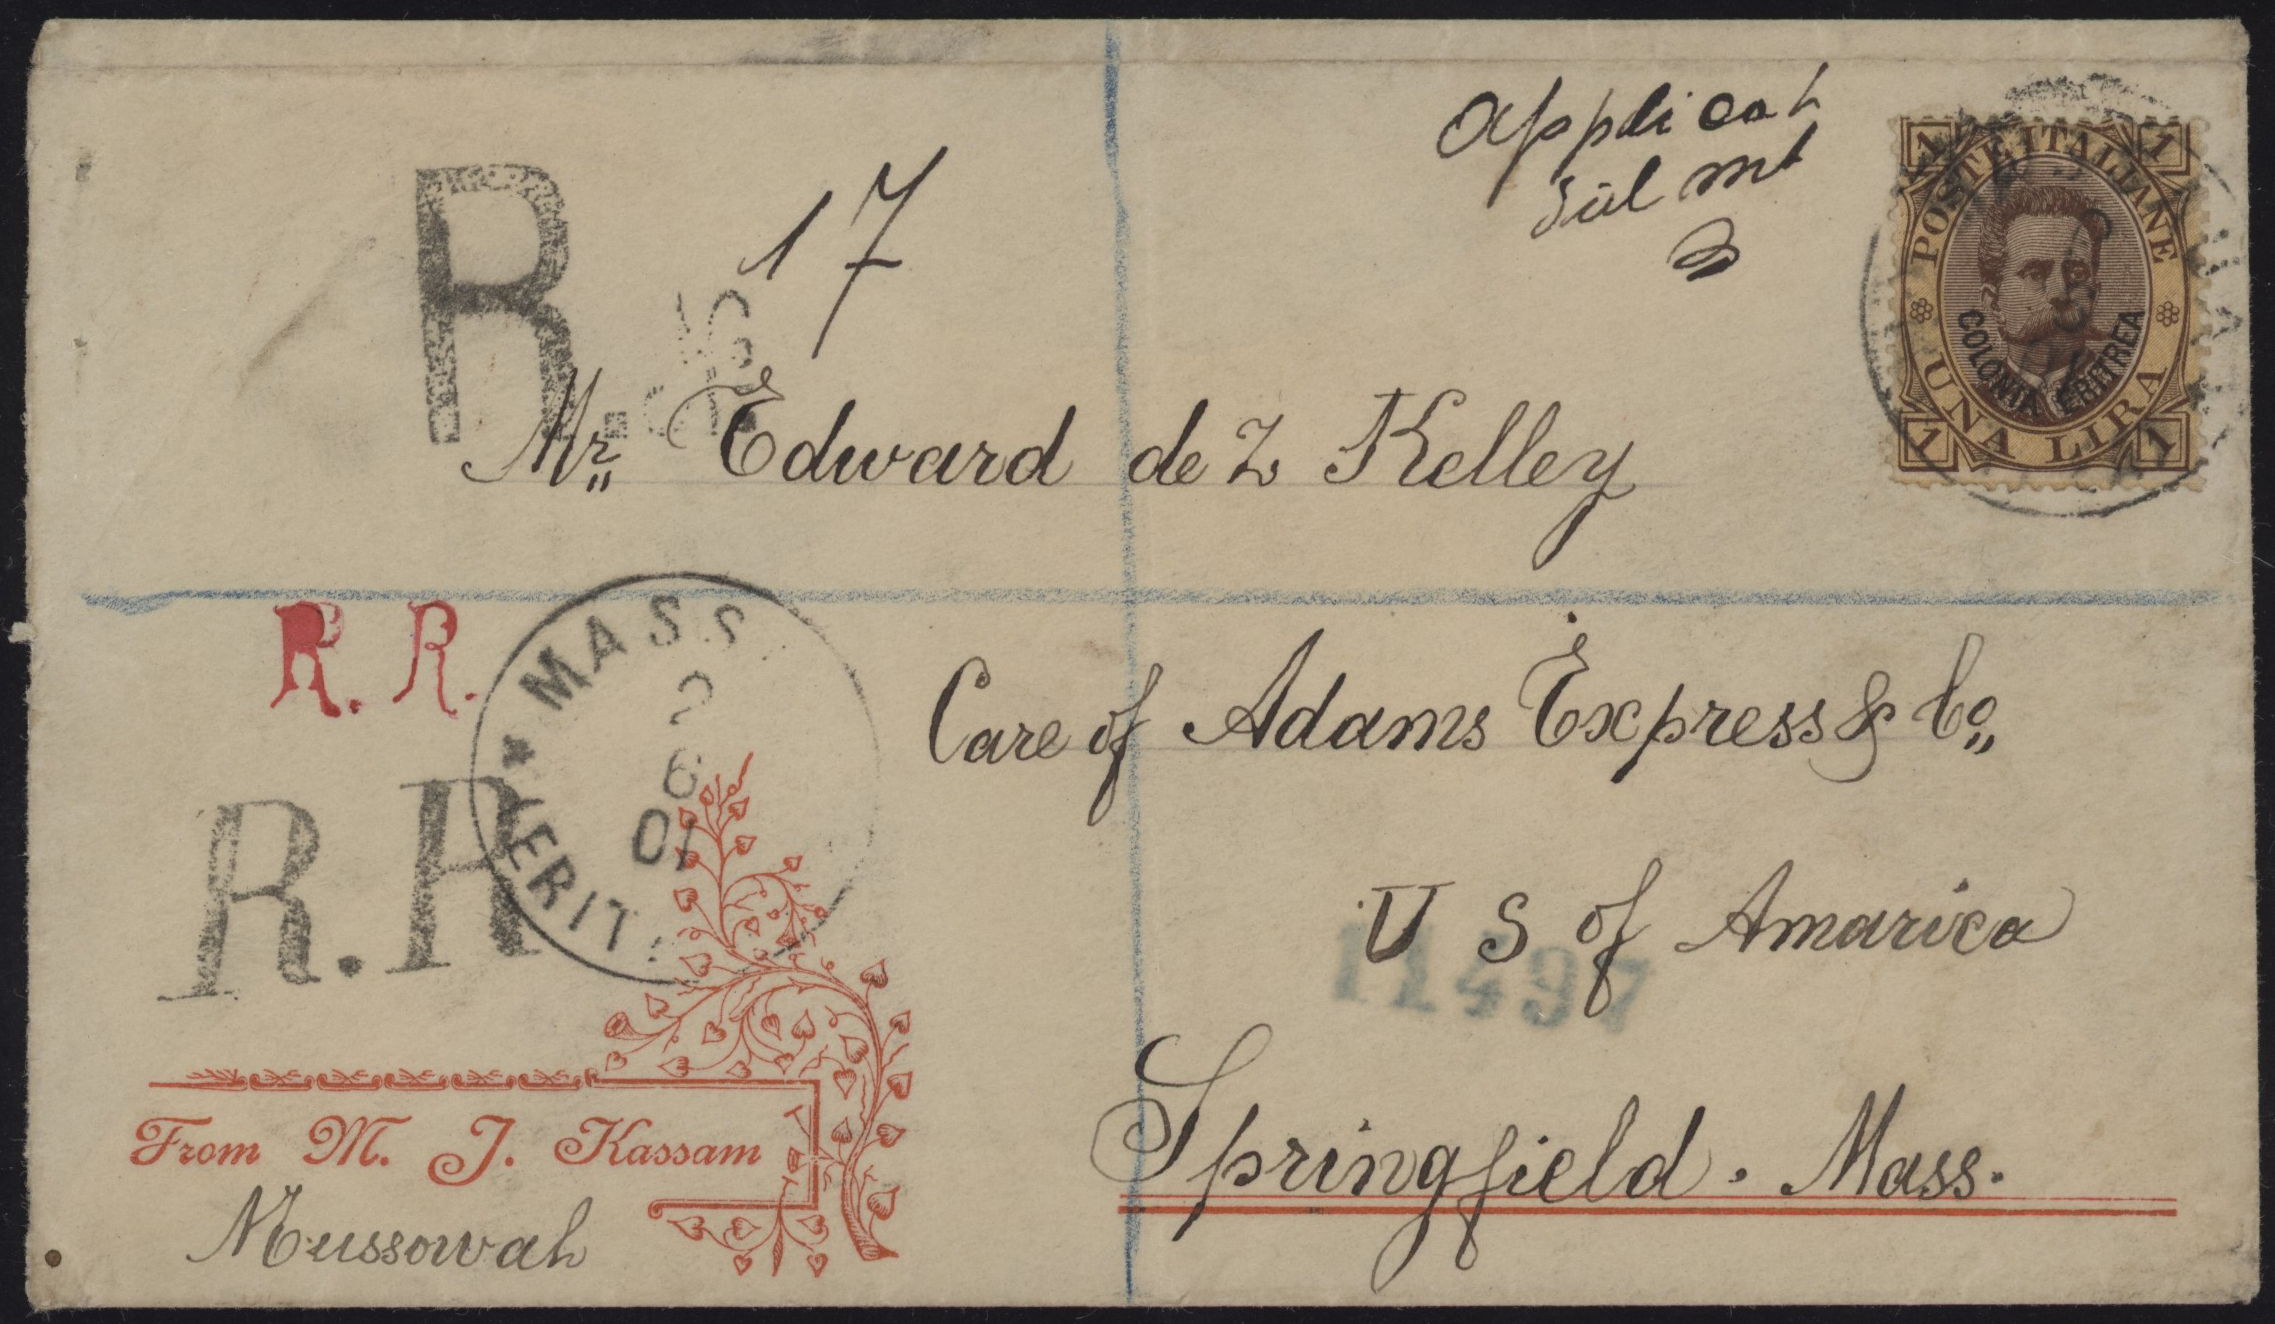 Applicat
sul mt
POSTE ITALIANE
COLONIA ERITREA
UNA LIRA
1 1
1 1
R.
17
Mr. Edward de Z Kelley
R. R.
MASS
2
6
01
ERIT
R.R
Care of Adams Express & Co.
U S of Amarica
11497
Springfield. Mass.
From M. J. Kassam
Mussowah